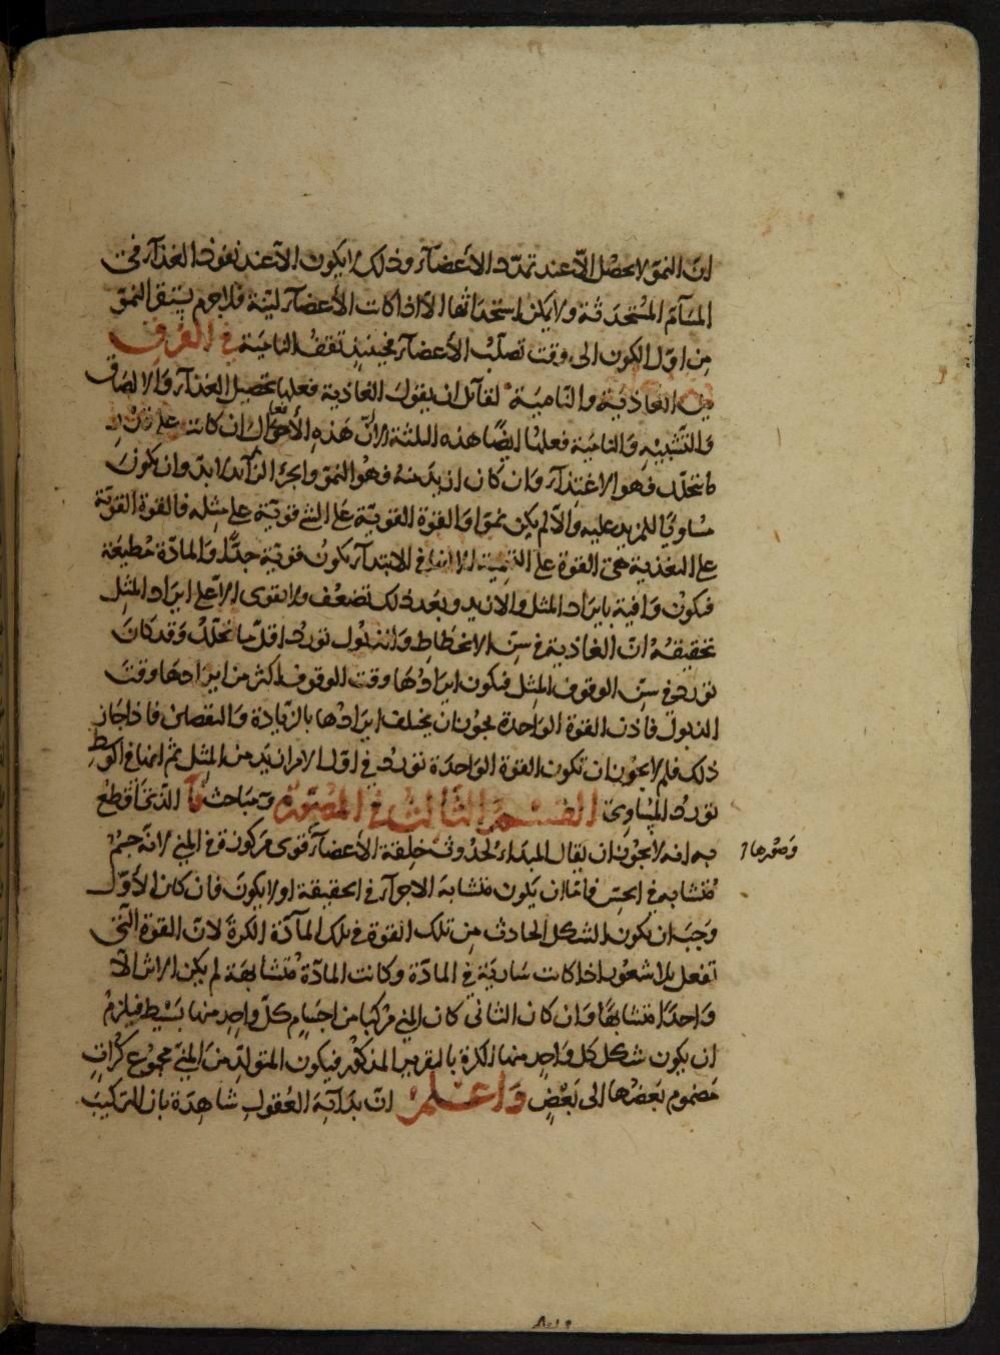 انّ النموّ لا يحصل الّا عند تمدّد الأعضآء وذلك لا يكون الّا عند نفوذ الغذآء في
المسآمّ المُستحدَثة ولا يمكن استحداثها الّا اذا كانت الأعضآء ليّنة فلا جرم يبتقى النموّ
من اوّل الكون الى وقت تصلّب الأعضآء فحينئذٍ تقف النامية في الفرق
بين الغاذية والنّامية لقائل ان يقول الغاذية فعلها تحصيل الغذآء والالصاق
والتّشبيه والنامية فعلها ايضًا هذه الثلثة لانّ هذه الأفعال ان كانت على قدر
ما تحلّل فهو الاغتذآء وان كان ازيد منه فهو النموّ والجزء الزآئد لا بدّ وان يكون
مساويًا للمزيد عليه والّا لم يكن نموّا والقوّة القويّة على الشئ قويّة على مثله فالقوة القويّة
على التغذية هى القوة على التنمية الّا انها في الابتدآء يكون قويّة جدًّا والمادّة مطيعة
فيكون وافية بايراد المثل والازيد وبعد ذلك تضعف ولا تقوى الّا على ايراد المثل
تحقيقه انّ الغاذية في سنّ الانحطاط والذبول تورد اقلّ ما تحلّل وقد كان
تورد في سنّ الوقوف المثل فيكون ايرادها وقت الوقوف اكثر من ايرادها وقت
الذبول فاذن القوة الواحدة يجوز ان يختلف ايرادها بالزيادة والنقصان فاذا جاز
ذلك فلم لا يجوز ان تكون القوة الواحدة تورد في اوّل الامر ازيد من المثل ثم انها في الوسط
تورد المساوى القسم الثالث في المصوّرة وفيه مباحث آ الّذى نقطع
به انه لا يجوز ان يقال المبداء لحدوث خلقة الأعضآء قوى مركوزة في المنى لانّه جسم
وصورها
متشابه في الحسّ فامّا ان يكون متشابه الاجزآء في الحقيقة او لا يكون فان كان الأوّل
وجب ان يكون الشكل الحادث من تلك القوة في تلك المآدّة الكرة لانّ القوة الّتى
تفعل بلا شعور اذا كانت سارية في المادّة وكانت المادّة متشابهة لم يكن الاثر الّا
واحدًا متشابهًا وان كان الثانى كان المنى مركبا من اجسام كلّ واحد منها بسيط فيلزم
ان يكون شكل كل واحد منها الكرة بالتقرير المذكور فيكون المتولد من المنى مجموع كراتٍ
مضموم بعضها الى بعض واعلم انّ بدآئه العقول شاهدة بان التركيب